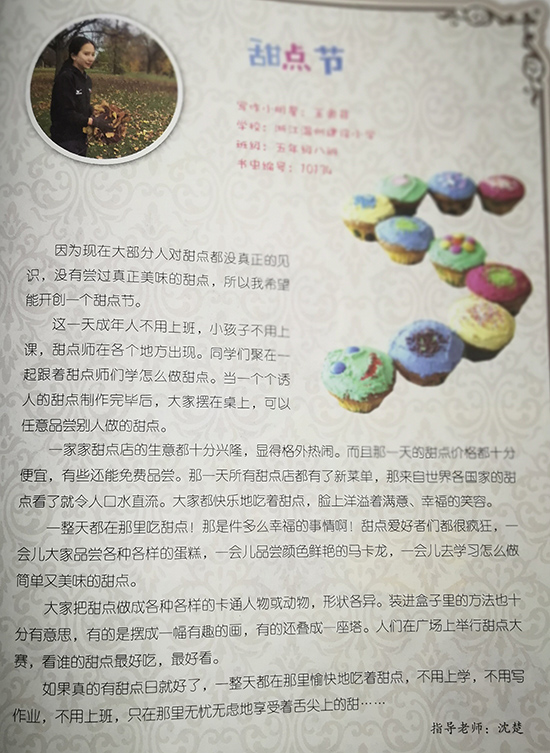 甜点节
学校：浙江温州建设小学
班级：五年级八班
书虫编号：10136
因为现在大部分人对甜点都没真正的见
识，没有尝过真正美味的甜点，所以我希望
能开创一个甜点节。
这一天成年人不用上班，小孩子不用上
课，甜点师在各个地方出现。同学们聚在一
起跟着甜点师们学怎么做甜点。当一个个诱
人的甜点制作完毕后，大家摆在桌上，可以
任意品尝别人做的甜点。
一家家甜点店的生意都十分兴隆，显得格外热闹。而且那一天的甜点价格都十分
便宜，有些还能免费品尝。那一天所有甜点店都有了新菜单，那来自世界各国家的甜
点看了就令人口水直流。大家都快乐地吃着甜点，脸上洋溢着满意、幸福的笑容。
一整天都在那里吃甜点！那是件多么幸福的事情啊！甜点爱好者们都很疯狂，一
会儿大家品尝各种各样的蛋糕，一会儿品尝颜色鲜艳的马卡龙，一会儿去学习怎么做
简单又美味的甜点。
大家把甜点做成各种各样的卡通人物或动物，形状各异。装进盒子里的方法也十
分有意思，有的是摆成一幅有趣的画，有的还叠成一座塔。人们在广场上举行甜点大
赛，看谁的甜点最好吃，最好看。
如果真的有甜点日就好了，一整天都在那里愉快地吃着甜点，不用上学，不用写
作业，不用上班，只在那里无忧无虑地享受着舌尖上的甜……
指导老师：沈楚